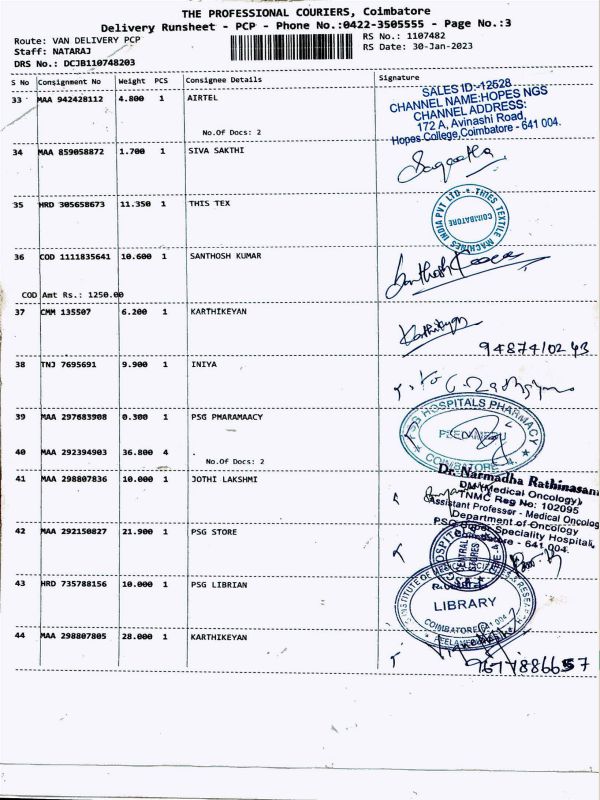 THE PROFESSIONAL COURIERS, Coimbatore
Delivery Runsheet - PCP - Phone No.:0422-3505555 - Page No.:3
Route: VAN DELIVERY PCP
RS No.: 1107482
Staff: NATARAJ
RS Date: 30-Jan-2023
DRS No.: DCJB110748203
S No Consignment No Weight PCS Consignee Details Signature
33 MAA 942428112 4.800 1 AIRTEL
No.Of Docs: 2
SALES ID:-12628
CHANNEL NAME:HOPES NGS
CHANNEL ADDRESS:
172 A, Avinashi Road,
Hopes College,Coimbatore - 641 004.
34 MAA 859058872 1.700 1 SIVA SAKTHI
35 HRD 305658673 11.350 1 THIS TEX
THIES TEXTILE MACHINES INDIA PVT LTD
COIMBATORE
36 COD 1111835641 10.600 1 SANTHOSH KUMAR
Santhosh
COD Amt Rs.: 1250.00
37 CMM 135507 6.200 1 KARTHIKEYAN
Karthikeyan
9487410243
38 TNJ 7695691 9.900 1 INIYA
39 MAA 297683908 0.300 1 PSG PHARAMAACY
PSG HOSPITALS PHARMACY
PEELAMEDU
COIMBATORE - 4.
40 MAA 292394903 36.800 4 .
No.Of Docs: 2
41 MAA 298807836 10.000 1 JOTHI LAKSHMI
Dr. Narmadha Rathinasam
DM (Medical Oncology)
TNMC Reg No: 102095
Assistant Professor - Medical Oncology
Department of Oncology
PSG Super Speciality Hospital,
Coimbatore - 641 004.
42 MAA 292150827 21.900 1 PSG STORE
CENTRAL STORES
43 HRD 735788156 10.000 1 PSG LIBRIAN
LIBRARY
COIMBATORE 641 004
44 MAA 298807805 28.000 1 KARTHIKEYAN